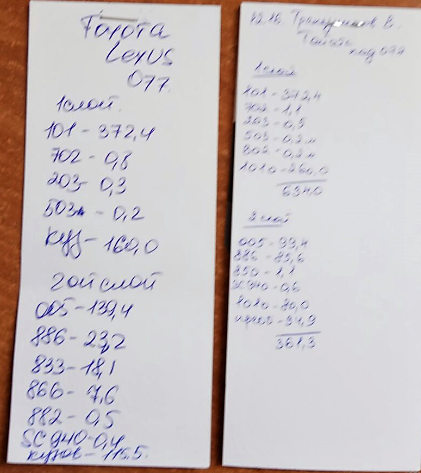 Toyota
Lexus
077.
1слой.
101-372,4
702-0,8
203-0,3
503м-0,2
куз-160,0
2ой слой
005-139,4
886-23,2
833-18,1
866-7,6
882-0,5
SC 940-0,4
кузов-115,5.
12.16. В.
Тойота
код 077
1 слой
101-372,4
702-1,1
203-0,5
503-0,2м
802-0,2м
1010-260,0
634,0
2 слой
005-99,4
886-85,6
850-1,1
SC940-0,6
1010-80,0
361,3